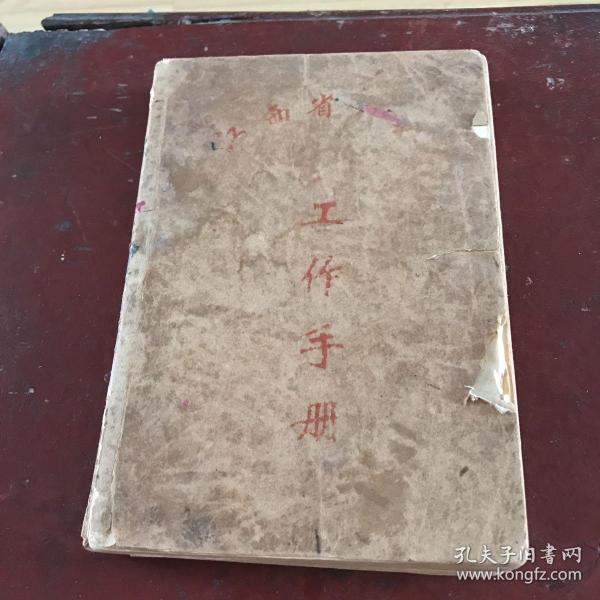 江西省
工作手册
孔夫子旧書网
www.kongfz.com